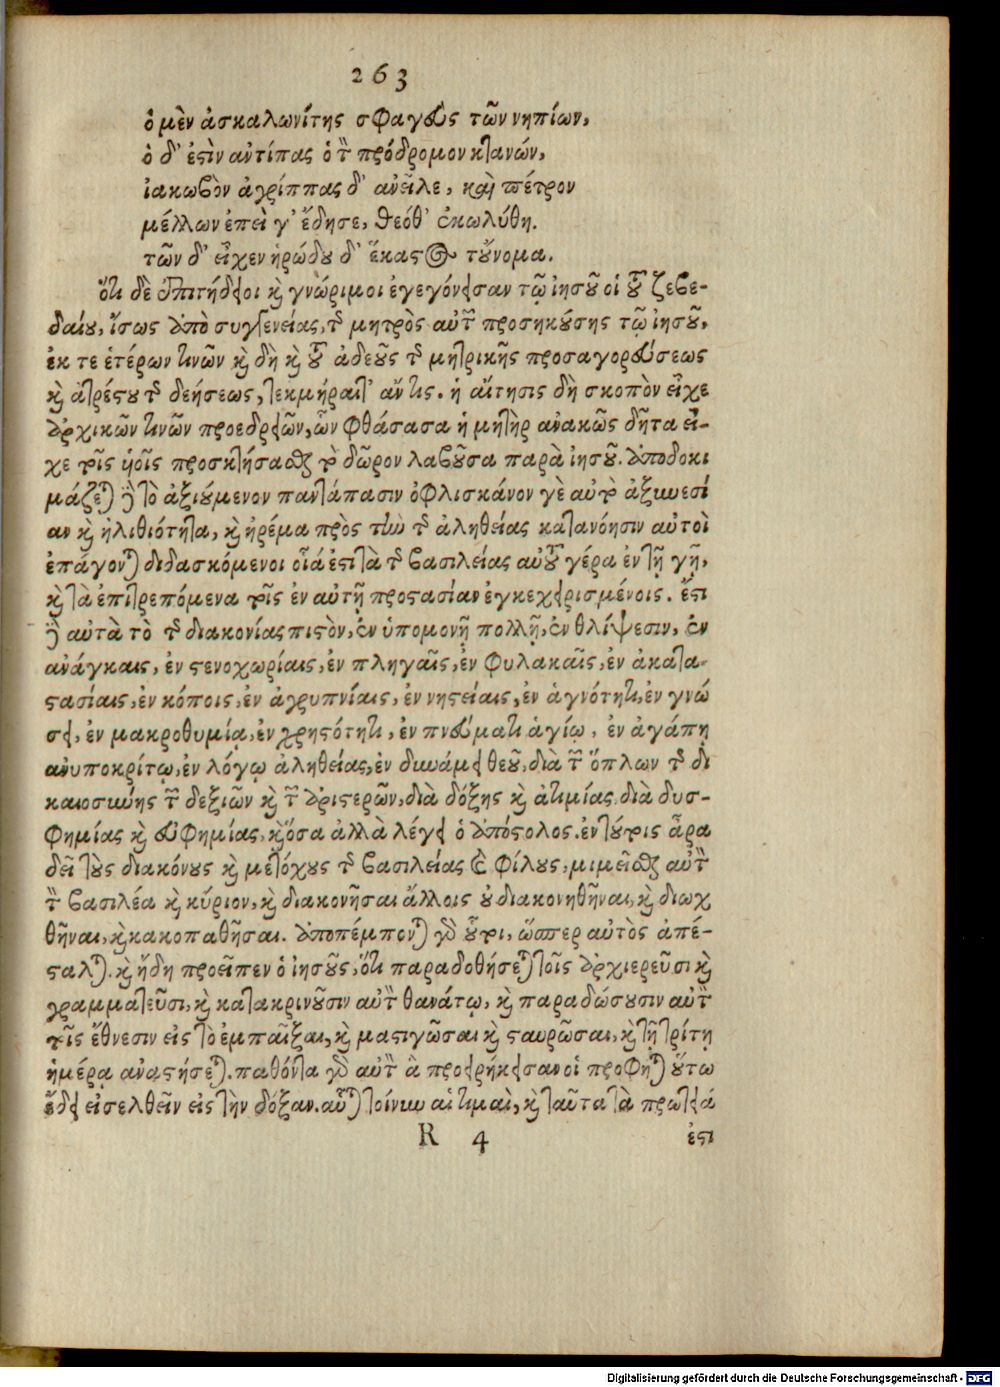 263
ὁ μὲν ἀσκαλωνίτης σφαγεὺς τῶν νηπίων,
ὁ δ' ἐστὶν αὐτίπας ὁ τὸν πρόδρομον κτανών,
ἰάκωβον ἀγρίππας δ' ἀνεῖλε, καὶ πέτρον
μέλλων ἐπεὶ γ' ἔδησε, θεόθ' ἐκωλύθη.
τῶν δ' εἶχεν ἡρώδου δ' ἕκαστος τὔνομα.
ὅτι δὲ ἐπιτήδειοι καὶ γνώριμοι ἐγεγόνεισαν τῷ ἰησοῦ οἱ τοῦ ζεβε-
δαίου, ἴσως ἀπὸ συγγενείας, τῆς μητρὸς αὐτῶν προσηκούσης τῷ ἰησοῦ,
ἔκ τε ἑτέρων τινῶν καὶ δὴ καὶ τοῦ ἀδεοῦς τῆς μητρικῆς προσαγορεύσεως
καὶ ἀτρέστου τῆς δεήσεως, τεκμήραιτ' ἄν τις. ἡ αἴτησις δὴ σκοπὸν εἶχε
ἀρχικῶν τινῶν προεδρειῶν, ὧν φθάσασα ἡ μητὴρ ἀνακῶς δῆτα εἶ-
χε τοῖς υἱοῖς προσκτήσασθαι τὸ δῶρον λαβοῦσα παρὰ ἰησοῦ. ἀποδοκι
μάζεται δὲ τὸ ἀξιούμενον παντάπασιν ὀφλισκάνον γὲ αὐτὸ ἀξυνεσί
αν καὶ ἠλιθιότητα, καὶ ἠρέμα πρὸς τὴν τῆς ἀληθείας κατανόησιν αὐτοὶ
ἐπάγονται διδασκόμενοι οἷά ἐστι τὰ τῆς βασιλείας αὐτοῦ γέρα ἐν τῇ γῇ,
καὶ τὰ ἐπιτρεπόμενα τοῖς ἐν αὐτῇ προστασίαν ἐγκεχειρισμένοις. ἔστι
δὲ αὐτὰ τὸ τῆς διακονίας πιστὸν, ἐν ὑπομονῇ πολλῇ, ἐν θλίψεσιν, ἐν
ἀνάγκαις, ἐν στενοχωρίαις, ἐν πληγαῖς, ἐν φυλακαῖς, ἐν ἀκατα-
στασίαις, ἐν κόποις, ἐν ἀγρυπνίαις, ἐν νηστείαις, ἐν ἁγνότητι, ἐν γνώ
σει, ἐν μακροθυμίᾳ, ἐν χρηστότητι, ἐν πνεύματι ἁγίῳ, ἐν ἀγάπῃ
ἀνυποκρίτῳ, ἐν λόγῳ ἀληθείας, ἐν δυνάμει θεοῦ, διὰ τῶν ὅπλων τῆς δι
καιοσύνης τῶν δεξιῶν καὶ τῶν ἀριστερῶν, διὰ δόξης καὶ ἀτιμίας, διὰ δυσ-
φημίας καὶ εὐφημίας, καὶ ὅσα ἀλλὰ λέγει ὁ ἀπόστολος. ἐν τούτοις ἆρα
δεῖ τοὺς διακόνους καὶ μετόχους τῆς βασιλείας καὶ φίλους, μιμεῖσθαι αὐτὸν
τὸν βασιλέα καὶ κύριον, καὶ διακονῆσαι ἄλλοις οὐ διακονηθῆναι, καὶ διωχ
θῆναι, καὶ κακοπαθῆσαι. ἀποπέμπονται γὰρ οὗτοι, ὥσπερ αὐτὸς ἀπέ-
σταλται. καὶ ἤδη προεῖπεν ὁ ἰησοῦς, ὅτι παραδοθήσεται τοῖς ἀρχιερεῦσι καὶ
γραμματεῦσι, καὶ κατακρινοῦσιν αὐτὸν θανάτῳ, καὶ παραδώσουσιν αὐτὸν
τοῖς ἔθνεσιν εἰς τὸ ἐμπαῖξαι, καὶ μαστιγῶσαι καὶ σταυρῶσαι, καὶ τῇ τρίτῃ
ἡμέρᾳ ἀναστήσεται. παθόντα γὰρ αὐτὸν ἃ προειρήκεισαν οἱ προφῆται οὕτω
ἔδει εἰσελθεῖν εἰς τὴν δόξαν. αὗται τοίνυν αἱ τιμαὶ, καὶ ταῦτα τὰ πρωτεῖά
R 4 ἐστι
Digitalisierung gefördert durch die Deutsche Forschungsgemeinschaft - DFG